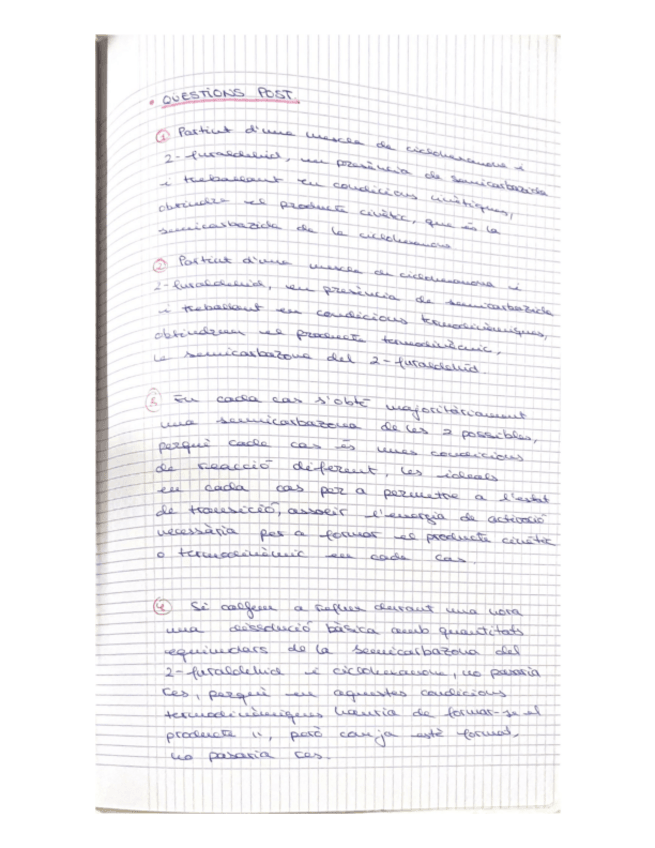 • QUESTIONS POST.
① Partint d'una mescla de ciclohexanona i
2-furaldehid, en presència de semicarbazida
i treballant en condicions cinètiques,
obtindré el producte cinètic, que és la
semicarbazida de la ciclohexanona
② Partint d'una mescla de ciclohexanona i
2-furaldehid, en presència de semicarbazida
i treballant en condicions termodinàmiques,
obtindrem el producte termodinàmic,
la semicarbazona del 2-furaldehid.
③ En cada cas s'obté majoritàriament
una semicarbazona de les 2 possibles,
perquè cada cas és unes condicions
de reacció diferent, les ideals
en cada cas per a permetre a l'estat
de transició, assolir l'energia de activació
necessària per a formar el producte cinètic
o termodinàmic en cada cas.
④ Si calfem a reflux durant una hora
una dissolució bàsica amb quantitats
equimolars de la semicarbazona del
2-furaldehid i ciclohexanona, no passaria
res, perquè en aquestes condicions
termodinàmiques hauria de formar-se el
producte ", però com ja està format,
no pasaria res.